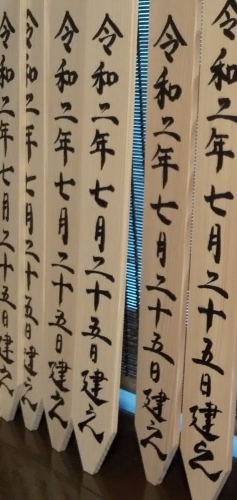 令和二年七月二十五日建之
令和二年七月二十五日建之
令和二年七月二十五日建之
令和二年七月二十五日建之
令和二年七月二十五日建之
令和二年七月二十五日建之